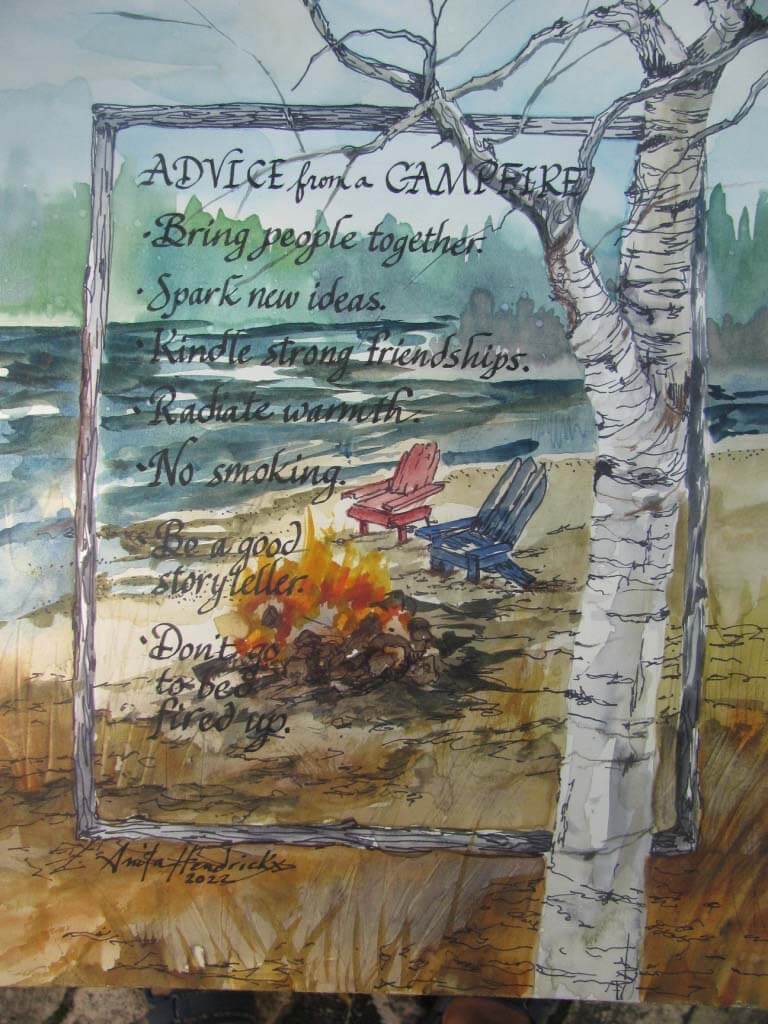 ADVICE from a CAMPFIRE
·Bring people together.
·Spark new ideas.
·Kindle strong friendships.
·Radiate warmth.
·No smoking.
·Be a good
storyteller.
·Don't go
to bed
fired up.
Anita Hendricks
2022